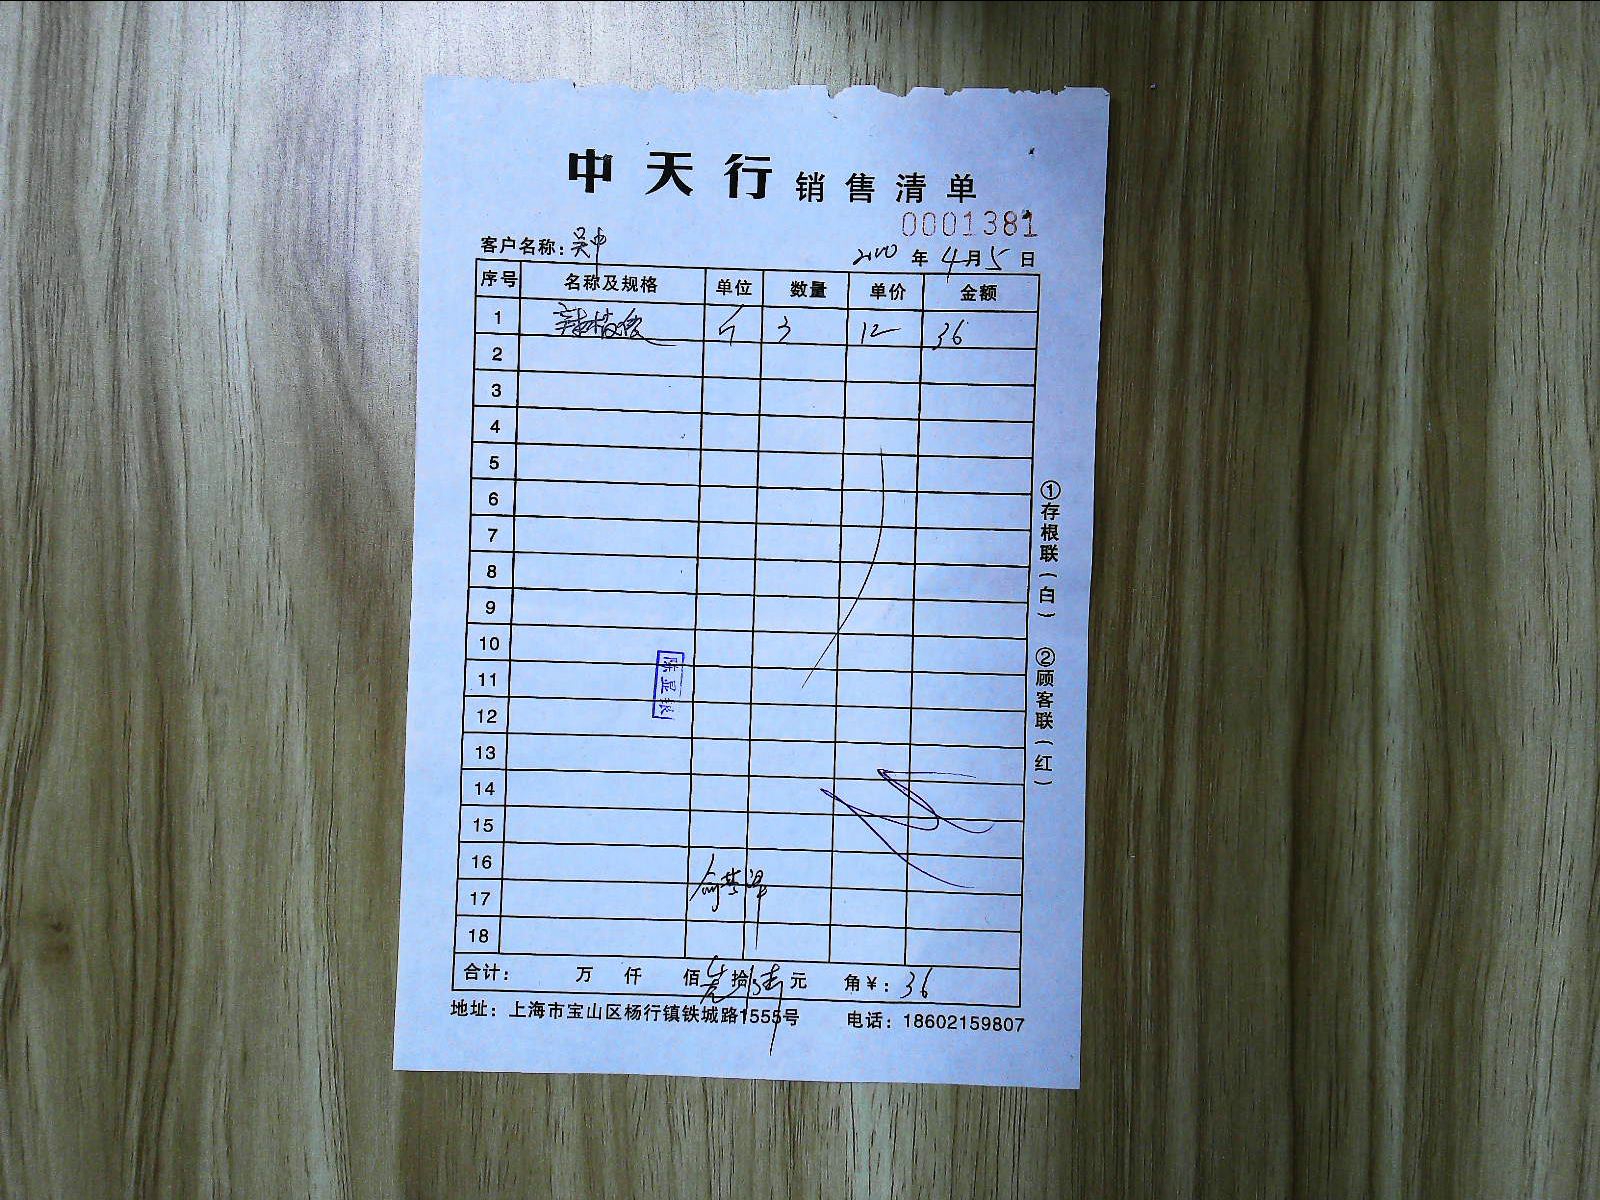 中天行 销售清单
0001381
客户名称：吴中 2000年4月5日
序号 名称及规格 单位 数量 单价 金额
1 辣椒段 斤 3 12 36
2
3
4
5
6
7
8
9
10
11
12
13
14
15
16
17
18
陈显银
合计： 万 仟 佰 叁拾陆元 角 ¥：36
地址：上海市宝山区杨行镇铁城路1555号 电话：18602159807
①存根联（白） ②顾客联（红）